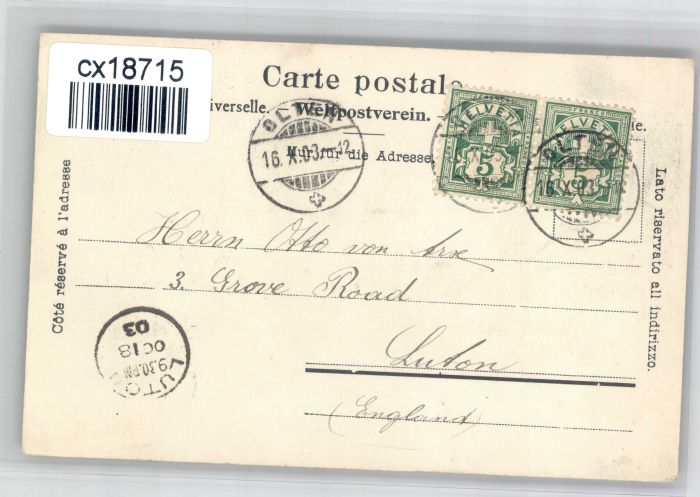 cx18715
Carte postale
iverselle. – Weltpostverein. –
Nur für die Adresse.
OLTEN
16.X.03.-12
HELVETIA
5
HELVETIA
5
OLTEN
16.X.03.-
Côté réservé à l'adresse
Lato riservato all indirizzo.
Herrn Otto von Arx
3. Grove Road
Luton
(England)
LUTON
9.30.PM
OC 18
03